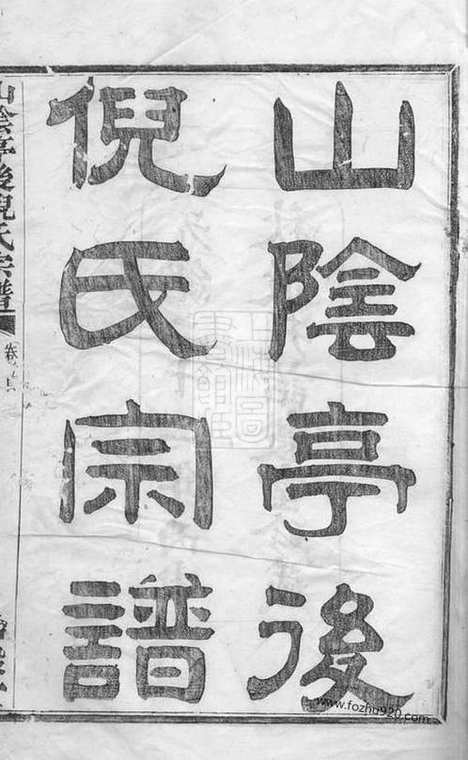 山陰亭後
倪氏宗譜
山陰亭後倪氏宗譜
卷
www.fozhu920.com